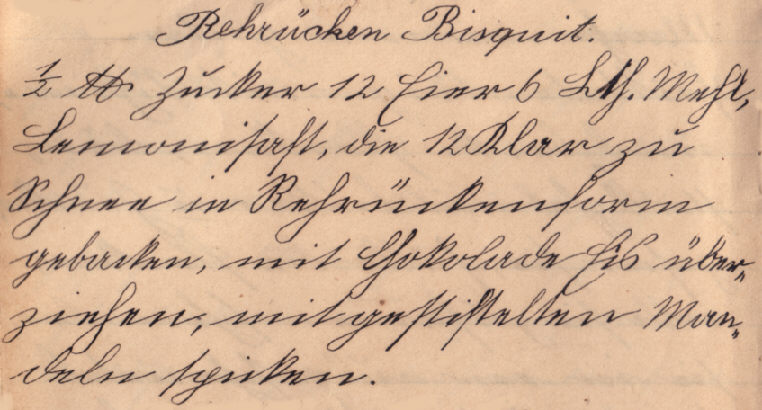 Rehrücken Bisquit.
½ ℔ Zucker 12 Eier 6 Lth. Mehl,
Lemonisaft, die 12 Klar zu
Schnee in Rehrückenform
gebacken, mit Chokolade Eis über-
ziehen, mit gestiftelten Man-
deln spicken.